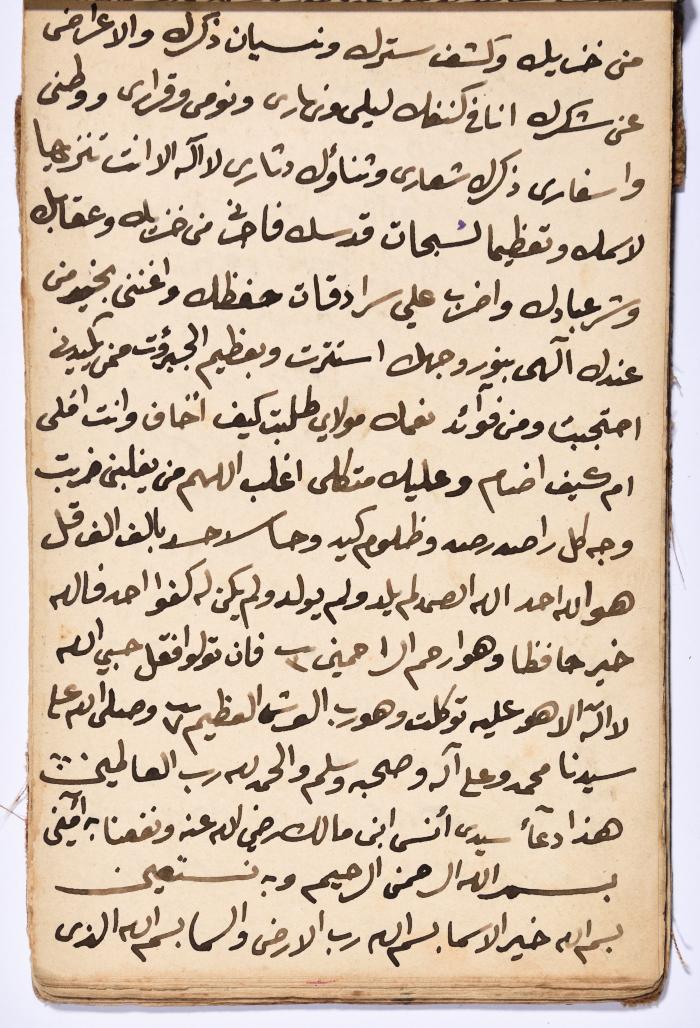 من خزيك وكشف سترك ونسيان ذكرك والاعراض
عن شكرك انا في كنفك ليلي ونهاري ونومي وقراري ووطني
واسفاري ذكرك شعاري وثناؤك دثاري لا اله الا انت تنزيها
لاسمك وتعظيما لسبحات قدسك فاجرني من خزيك وعقابك
وشر عبادك واضرب علي سرادقات حفظك واغنني بخير من
عندك الهي بنور وجهك استترت وبعظيم الجبروت ممن يكيدني
احتجبت ومن فوائد نعمك مولاي طلبت كيف اخاف وانت املي
ام كيف اضام وعليك متكلي اغلب اللهم من يغلبني ضربت
وجه كل راصد رصد وظلوم كيد وحاسد حسد بالف الف قل
هو الله احد الله الصمد لم يلد ولم يولد ولم يكن له كفوا احد فالله
خير حافظا وهو ارحم الراحمين ٣ فان تولوا فقل حسبي الله
لا اله الا هو عليه توكلت وهو رب العرش العظيم ٧ وصلى الله على
سيدنا محمد وعلى آله وصحبه وسلم والحمد لله رب العالمين
هذا دعاء سيدي أنس ابن مالك رضي الله عنه ونفعنا به آمين
بسم الله الرحمن الرحيم وبه نستعين
بسم الله خير الاسما بسم الله رب الارض والسما بسم الله الذي